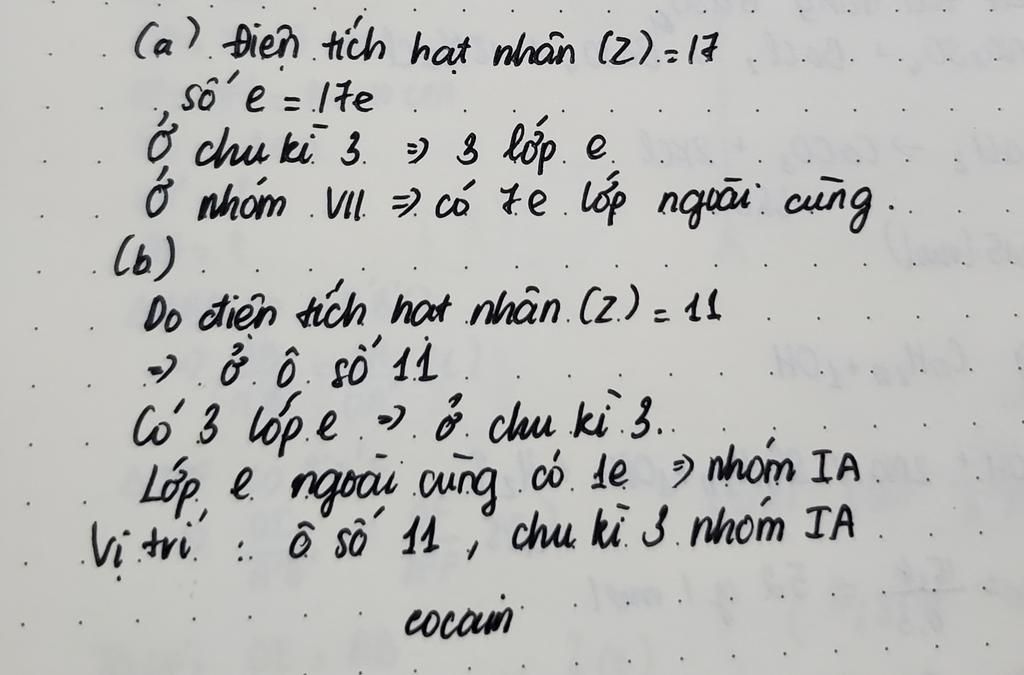 (a) Điện tích hạt nhân (Z) = 17
số e = 17e
Ở chu kì 3 => 3 lớp e
Ở nhóm VII => có 7e lớp ngoài cùng.
(b)
Do điện tích hạt nhân (Z) = 11
=> ở ô số 11
Có 3 lớp e => ở chu kì 3.
Lớp e ngoài cùng có 1e => nhóm IA
Vị trí : ô số 11, chu kì 3 nhóm IA
cocain